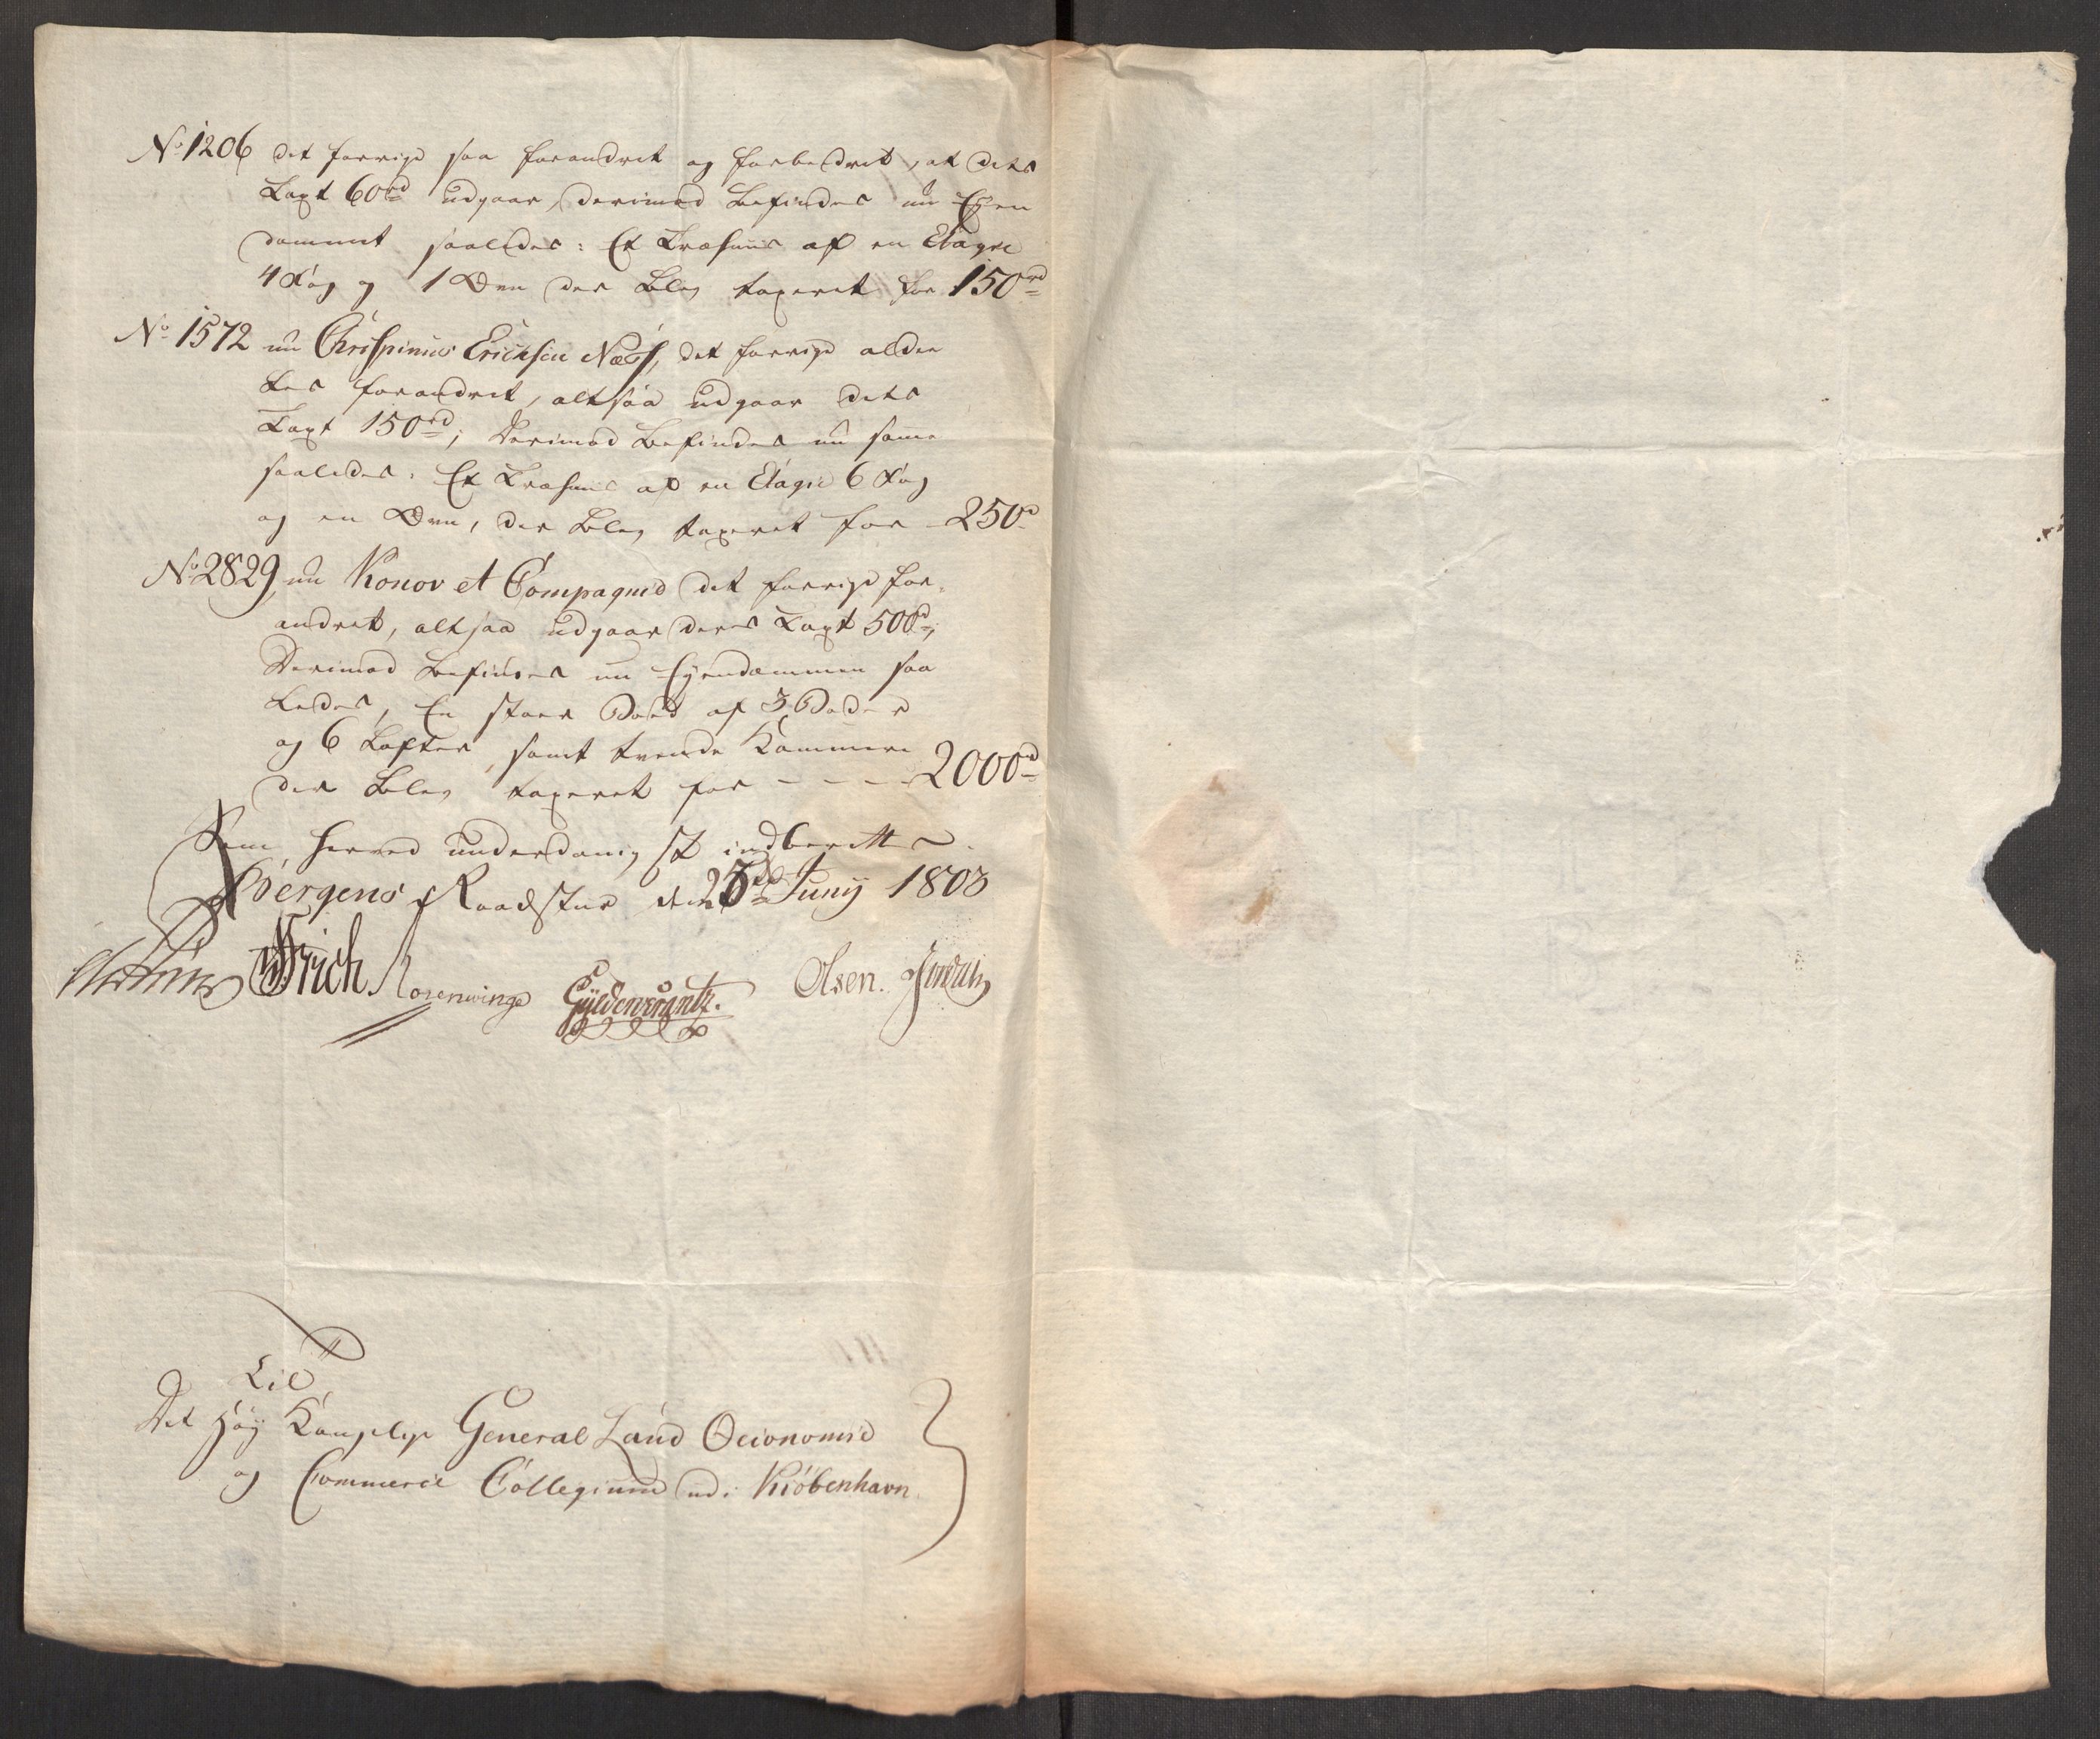 No 1206 det forrige saa forandret og forbedret, at dets
Taxt 60rd udgaar, derimod befindes nu Eyen
dommet saaledes: Et Træhuus af en Etagie
4 Fag og 1 Ovn der blev taxeret for 150rd
No 1572 nu Chrispinus Erichsen Næss, det forrige aldee
les forandret, altsaa udgaar dets
Taxt 150rd; derimod befindes nu samme
saaledes: Et Træhuus af en Etagie 6 Fag
og en Ovn, der blev taxeret for - 250rd
No 2829, nu Konov et Compagnie det forrige for-
andret, altsaa udgaar deres Taxt 500rd,
derimod befindes nu Eyendommen saa
ledes, En stoer Boed af 3 Boder
og 6 Lofter, samt trende Kammere
der blev taxeret for - - - - 2000rd
Som herved underdanigst indberettes.
Bergens Raadstue den 25de Juny 1803
Rosenvinge Gyldenkrantz. Olsen.
Til
Det Høy Kongelige General Land Oeconomie
og Commerce Collegium udi Kiøbenhavn